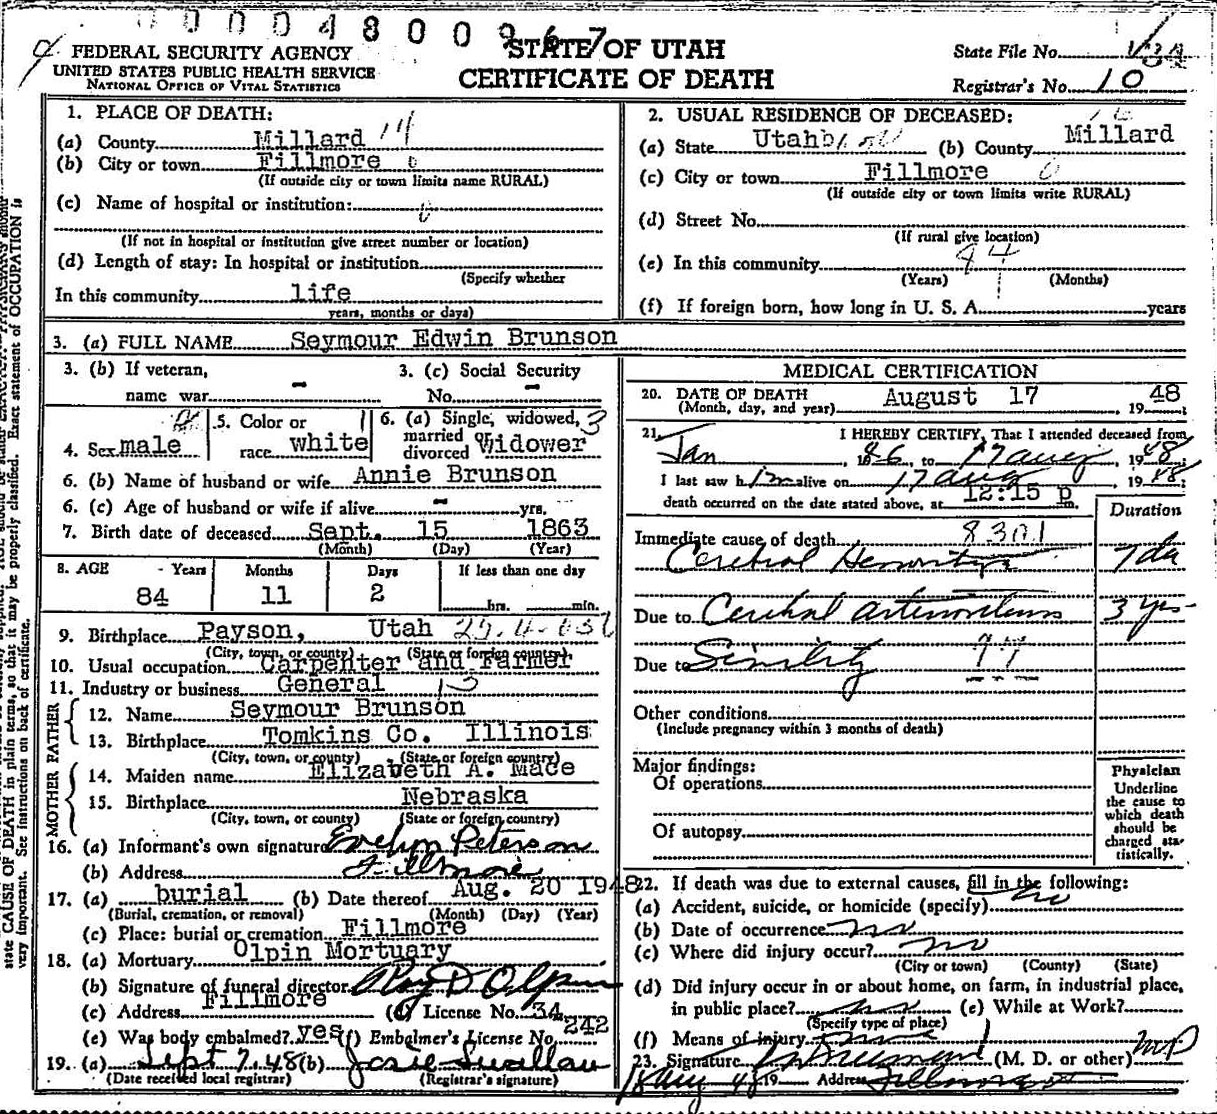 0000480 0967
FEDERAL SECURITY AGENCY
UNITED STATES PUBLIC HEALTH SERVICE
NATIONAL OFFICE OF VITAL STATISTICS
STATE OF UTAH
CERTIFICATE OF DEATH
State File No.
Registrar's No. 10
1. PLACE OF DEATH:
(a) County Millard 14
(b) City or town Fillmore 0
(If outside city or town limits name RURAL)
(c) Name of hospital or institution:
(If not in hospital or institution give street number or location)
(d) Length of stay: In hospital or institution
(Specify whether
In this community life
years, months or days)
2. USUAL RESIDENCE OF DECEASED:
(a) State Utah (b) County Millard
(c) City or town Fillmore 0
(If outside city or town limits write RURAL)
(d) Street No.
(If rural give location)
(e) In this community
(Years) (Months)
(f) If foreign born, how long in U. S. A. years
3. (a) FULL NAME Seymour Edwin Brunson
3. (b) If veteran,
name war -
3. (c) Social Security
No. -
4. Sex male
5. Color or
race white
6. (a) Single, widowed, 3
married or
divorced Widower
6. (b) Name of husband or wife Annie Brunson
6. (c) Age of husband or wife if alive - yrs.
7. Birth date of deceased Sept. 15 1863
(Month) (Day) (Year)
8. AGE - Years Months Days If less than one day
84 11 2 hrs. min.
9. Birthplace Payson, Utah
(City, town, or county) (State or foreign country)
10. Usual occupation Carpenter and Farmer
11. Industry or business General
FATHER
12. Name Seymour Brunson
13. Birthplace Tomkins Co. Illinois
(City, town, or county) (State or foreign country)
MOTHER
14. Maiden name Elizabeth A. Mace
15. Birthplace Nebraska
(City, town, or county) (State or foreign country)
16. (a) Informant's own signature Evelyn Peterson
(b) Address Fillmore
17. (a) burial (b) Date thereof Aug. 20 1948
(Burial, cremation, or removal) (Month) (Day) (Year)
(c) Place: burial or cremation Fillmore
18. (a) Mortuary Olpin Mortuary
(b) Signature of funeral director Roy D Olpin
(c) Address Fillmore (d) License No. 34
(e) Was body embalmed? yes (f) Embalmer's License No. 242
19. (a) Sept 7, 48 (b) Josie Swallow
(Date received local registrar) (Registrar's signature)
MEDICAL CERTIFICATION
20. DATE OF DEATH August 17 1948
(Month, day, and year)
21. I HEREBY CERTIFY, That I attended deceased from
Jan, to 17 Aug, 1948
I last saw him alive on 17 Aug 1948
death occurred on the date stated above, at 12:15 p m.
Duration
Immediate cause of death 8301
Cerebral 7 da
Due to Cerebral 3 yrs
Due to Senility
Other conditions
(Include pregnancy within 3 months of death)
Major findings:
Of operations
Of autopsy
Physician
Underline
the cause to
which death
should be
charged sta-
tistically.
22. If death was due to external causes, fill in the following:
(a) Accident, suicide, or homicide (specify) no
(b) Date of occurrence no
(c) Where did injury occur? no
(City or town) (County) (State)
(d) Did injury occur in or about home, on farm, in industrial place,
in public place? no (e) While at Work?
(Specify type of place)
(f) Means of injury
23. Signature (M. D. or other) MD
18 Aug 48 19 Address Fillmore
state CAUSE OF DEATH in plain terms, so that it may be properly classified. Exact statement of OCCUPATION is
very important. See instructions on back of certificate.